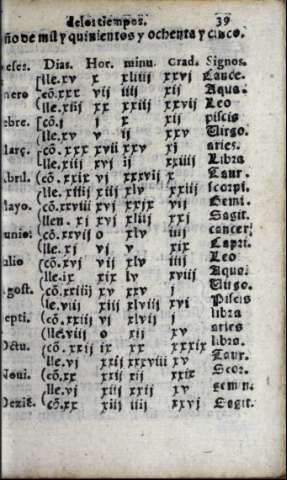 de los tiempos. 39
ño de mil y quinientos y ochenta y cinco.
eses. Dias. Hor. minu. Grad. Signos.
(lle.xv x xliiij xxvj Cance.
nero (cō.xxx vij iiij xij Aqua.
(lle.xiiij xx xxiij xxvij Leo
ebre. (cō.j j x xij piscis
(lle.xv v ij xxv Uirgo.
Març. (cō.xxx xvij xxv xj aries.
(lle.xiij xvj ij xxiiij Libra
Abril. (cō.xxix vj xxxvij x Taur.
(lle.xiiij xiij xlv xxiij scorpi.
Mayo. (cō.xxviij xvj xxix vij Gemi.
(llen.xj xvj xliij xxj Sagit.
unio: (cō.xxvij o xlv iiij cancer
(lle.xj vj v xix Capri.
ulio (cō.xvj vij xlv iiij Leo
(lle.ix xix lv xviij Aquo.
Agost. (cō.xxiiij xv xxv j Uirgo.
(le.viij xiij xlviij xvj Piscis
epti. (cō.xxiij vj xlvij j libra
(lle.viij o xij xv aries
Octu. (cō.xxij ix xx xxxix libra.
(lle.vj xxij xxxviij xv Taur.
Noui. (cō.xx xxij xij xxix Scor.
(lle.vj xiij xxij xv gemin.
Dezië. (cō.xx xiij iiij xxvj Sagit.